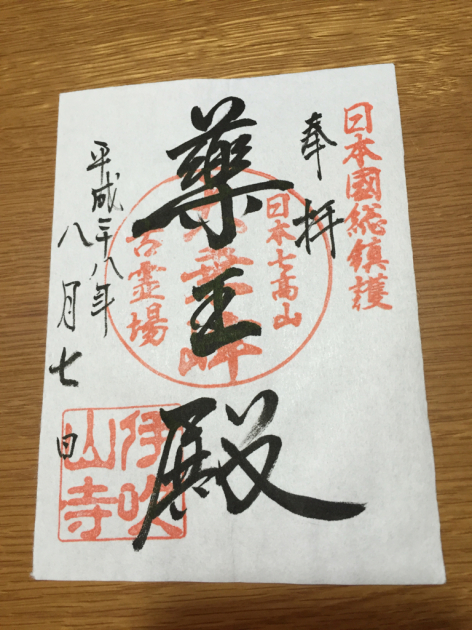 日本國総鎮護
奉拝
日本七高山
藥王殿
古霊場
平成二十八年
八月七日
伊吹
山寺